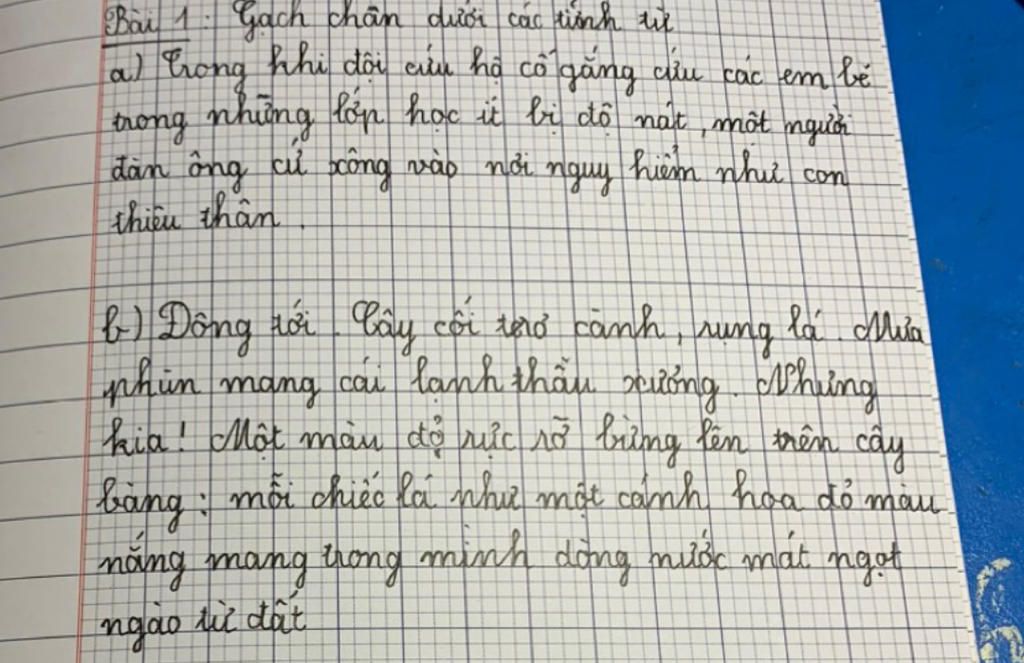 Bài 1: Gạch chân dưới các tính từ
a) Trong khi đội cứu hộ cố gắng cứu các em bé
trong những lớp học ít bị đổ nát, một người
đàn ông cứ xông vào nơi nguy hiểm như con
thiêu thân.
b) Đông tới. Cây cối trơ cành, rụng lá. Mưa
phùn mang cái lạnh thấu xương. Nhưng
kia! Một màu đỏ rực rỡ bừng lên trên cây
bàng: mỗi chiếc lá như một cánh hoa đỏ màu
nắng mang trong mình dòng nước mát ngọt
ngào từ đất